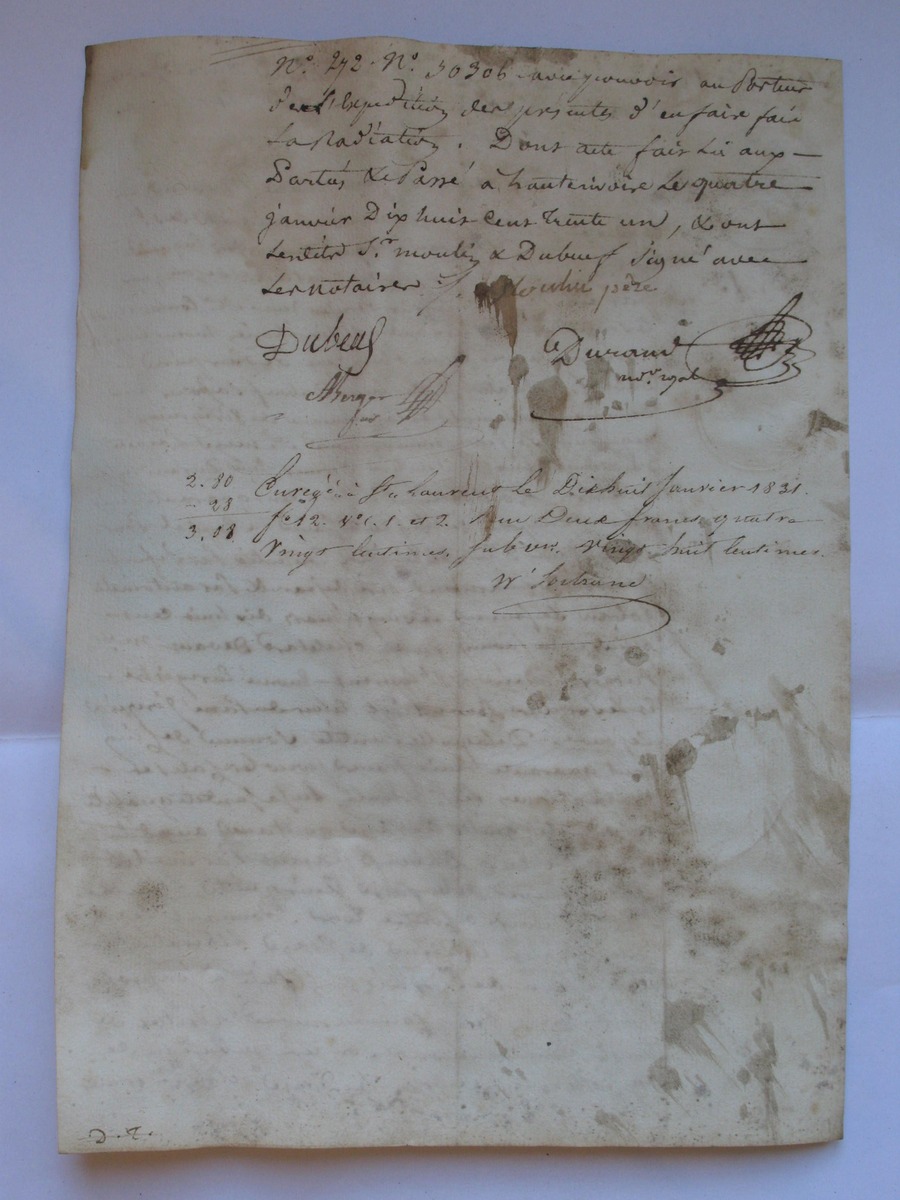 N.° 272. N.° 30306. avec pouvoir au Porteur
de l'Expedition des presentes d'en faire faire
La Radiation. Dont acte fait Lu aux
Parties & Passé à hauterivoire Le quatre
janvier Dix huit cent trente un, & ont
Lesdits S.r moulin & Dubeuf signé avec
Les notaires. moulin père
Dubeuf Durand
not.re royal
Berger
2.80 Enregé. à St. Laurent Le Dixhuit Janvier 1831.
- 28 fo. 12. Vo. c. 1. et 2. Reçu Deux francs quatre
3.08 Vingt Centimes. Subvon. Vingt huit Centimes.